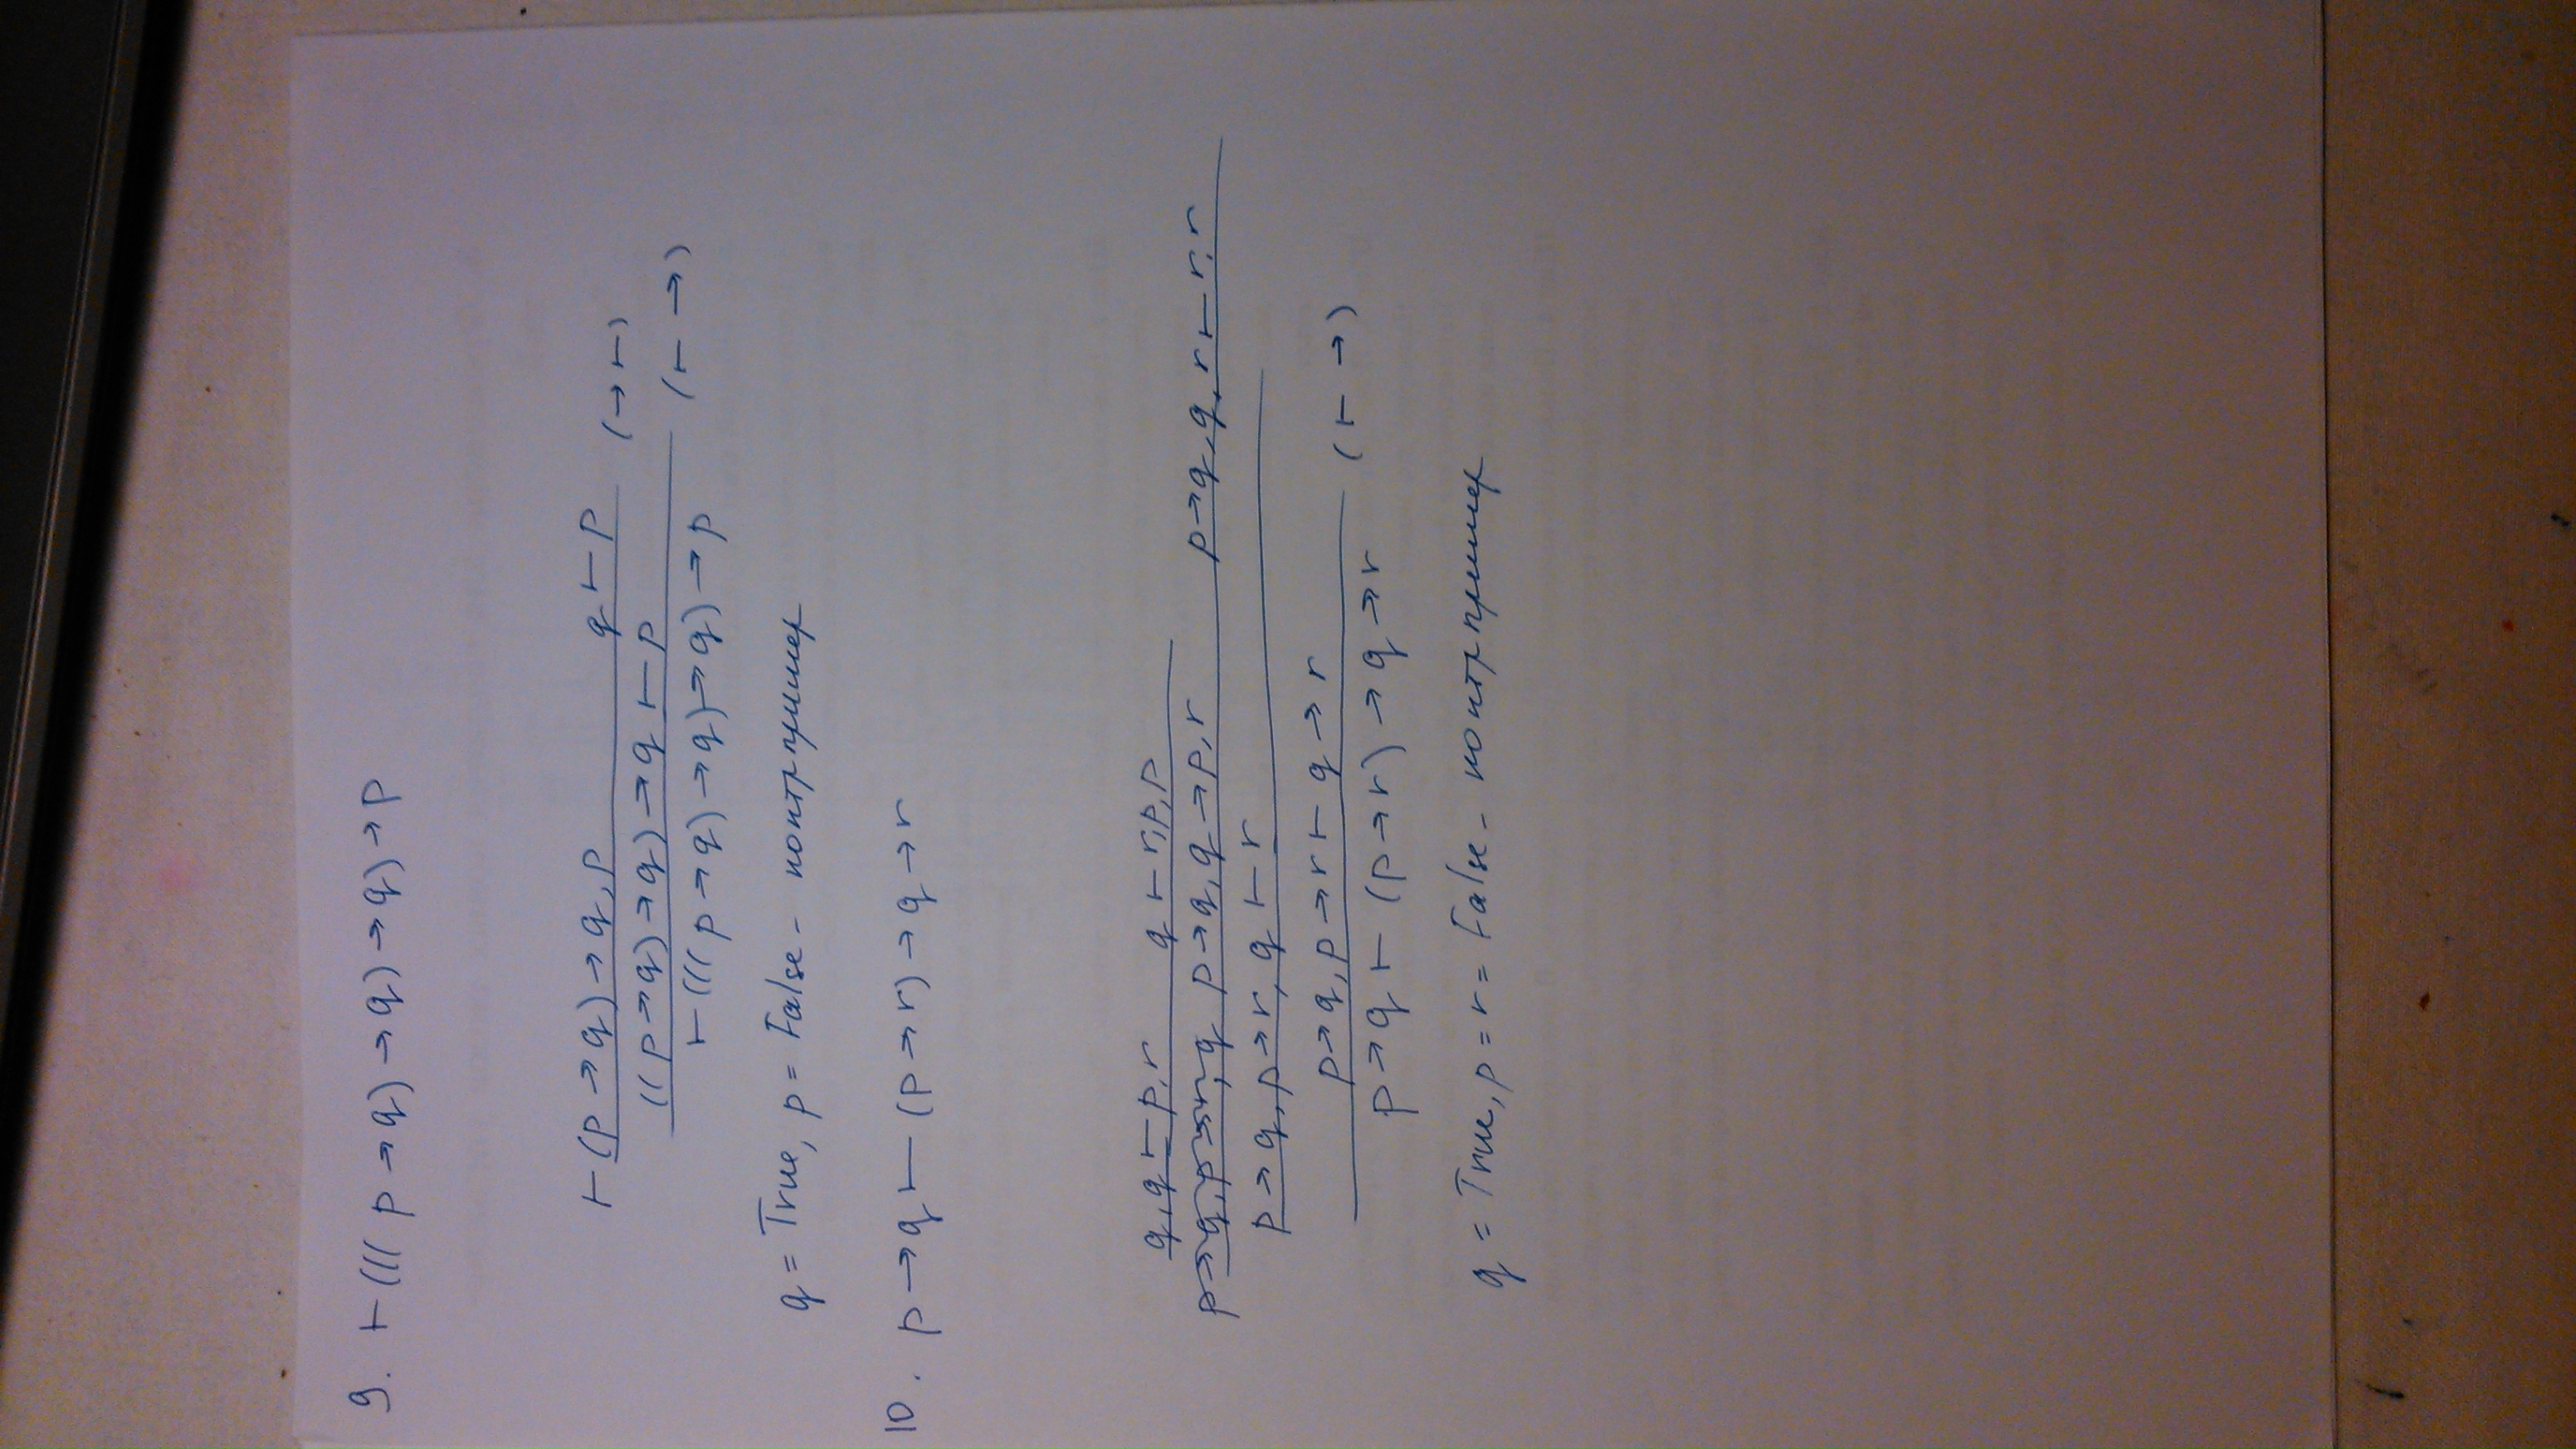 9. ⊢ ((( p → q) → q) → q) → p
⊢ (p → q) → q, p q ⊢ p (→ ⊢)
((p → q) → q) → q ⊢ p (⊢ →)
⊢ (((p → q) → q) → q) → p
q = True, p = False - контрпример
10. p → q ⊢ (p → r) → q → r
q, q ⊢ p, r q ⊢ r, p, p
p → q, p → r, q p → q, q → p, r p → q, q, r ⊢ r, r
p → q, p → r, q ⊢ r
p → q, p → r ⊢ q → r (⊢ →)
p → q ⊢ (p → r) → q → r
q = True, p = r = False - контрпример